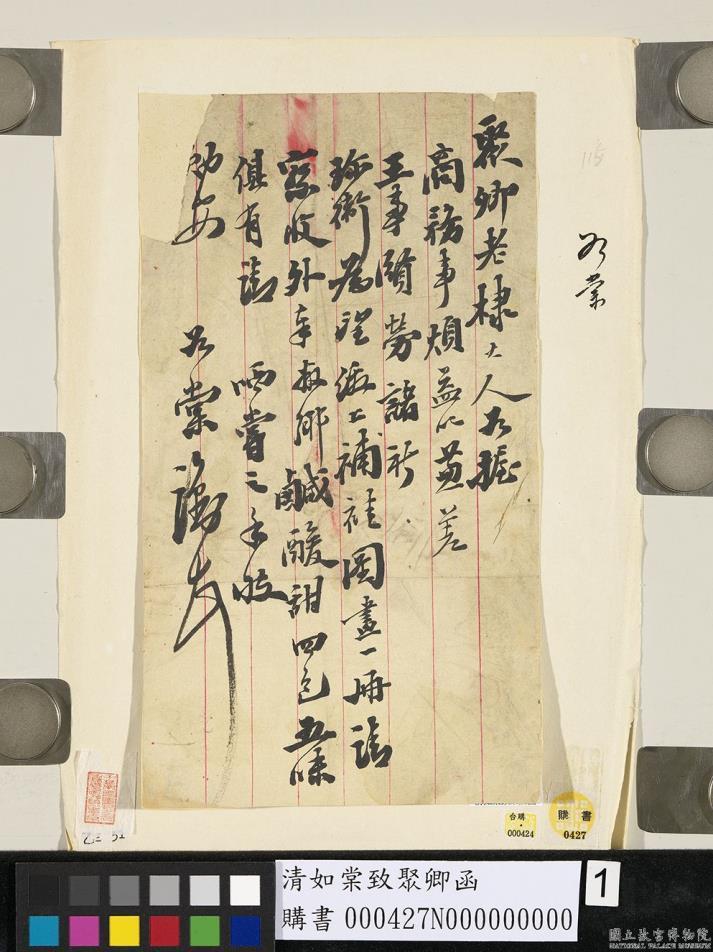 聚卿老棣大人如握
商務事煩益以黃差
王事賢勞諸祈
珍衛為望繳上補褂圖畫一冊請
察收外奉敝鄉鹹酸甜四包五味
俱有請 哂嘗之手肅
勛安 如棠
如棠
115
台購
000424
購書
0427
清如棠致聚卿函
購書 000427N000000000
1
國立故宮博物院
NATIONAL PALACE MUSEUM